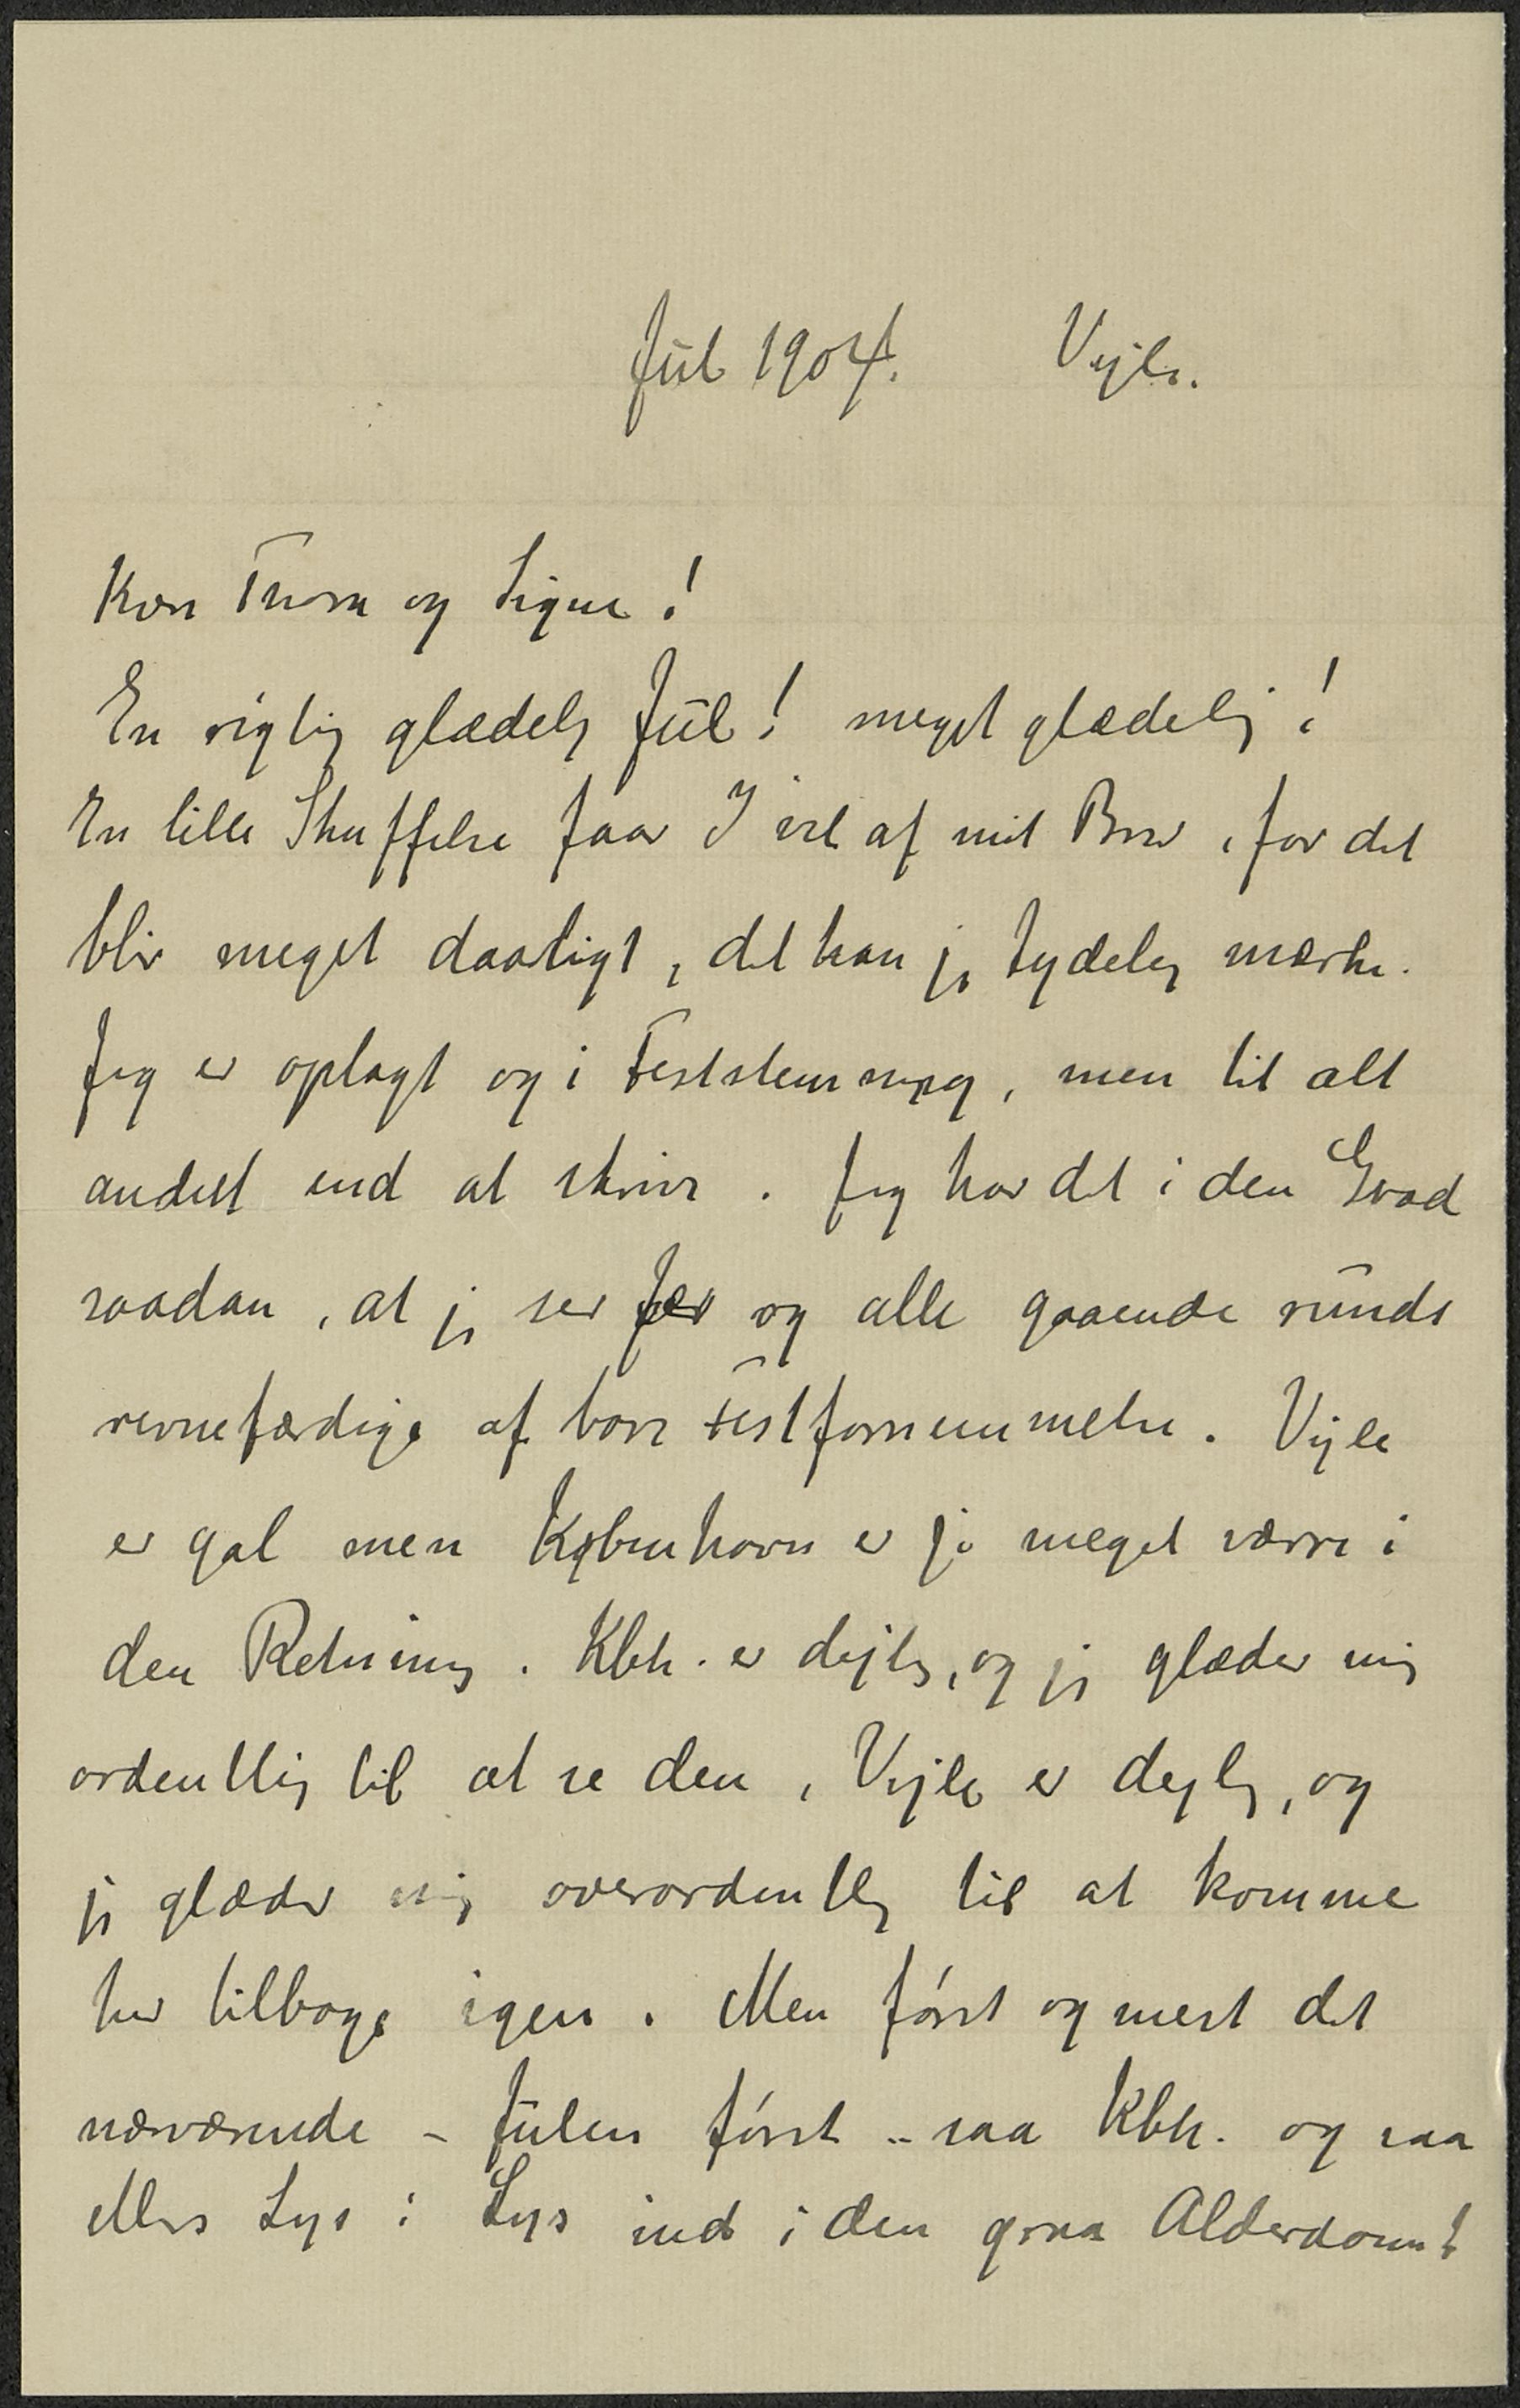 Jul 1904. Vejle.
Kære Thora og Signe!
En rigtig glædelig Jul! meget glædelig!
En lille Skuffelse faar I vel af mit Brev, for det
blir meget daarligt, det kan jeg tydelig mærke.
Jeg er oplagt og i Feststemning, men til alt
andet end at skrive. Jeg har det i den Grad
saadan, at jeg ser Jer og alle gaaende runds
revnefærdige af bare Festfornemmelse. Vejle
er gal men København er jo meget værre i
den Retning. Kbh. er dejlig, og jeg glæder mig
ordentlig til at se den, Vejle er dejlig, og
jeg glæder mig overordentlig til at komme
her tilbage igen. Men først og mest det
nærværende – Julen først – saa Kbh. og saa
ellers Lys i Lys ind i den graa Alderdom!